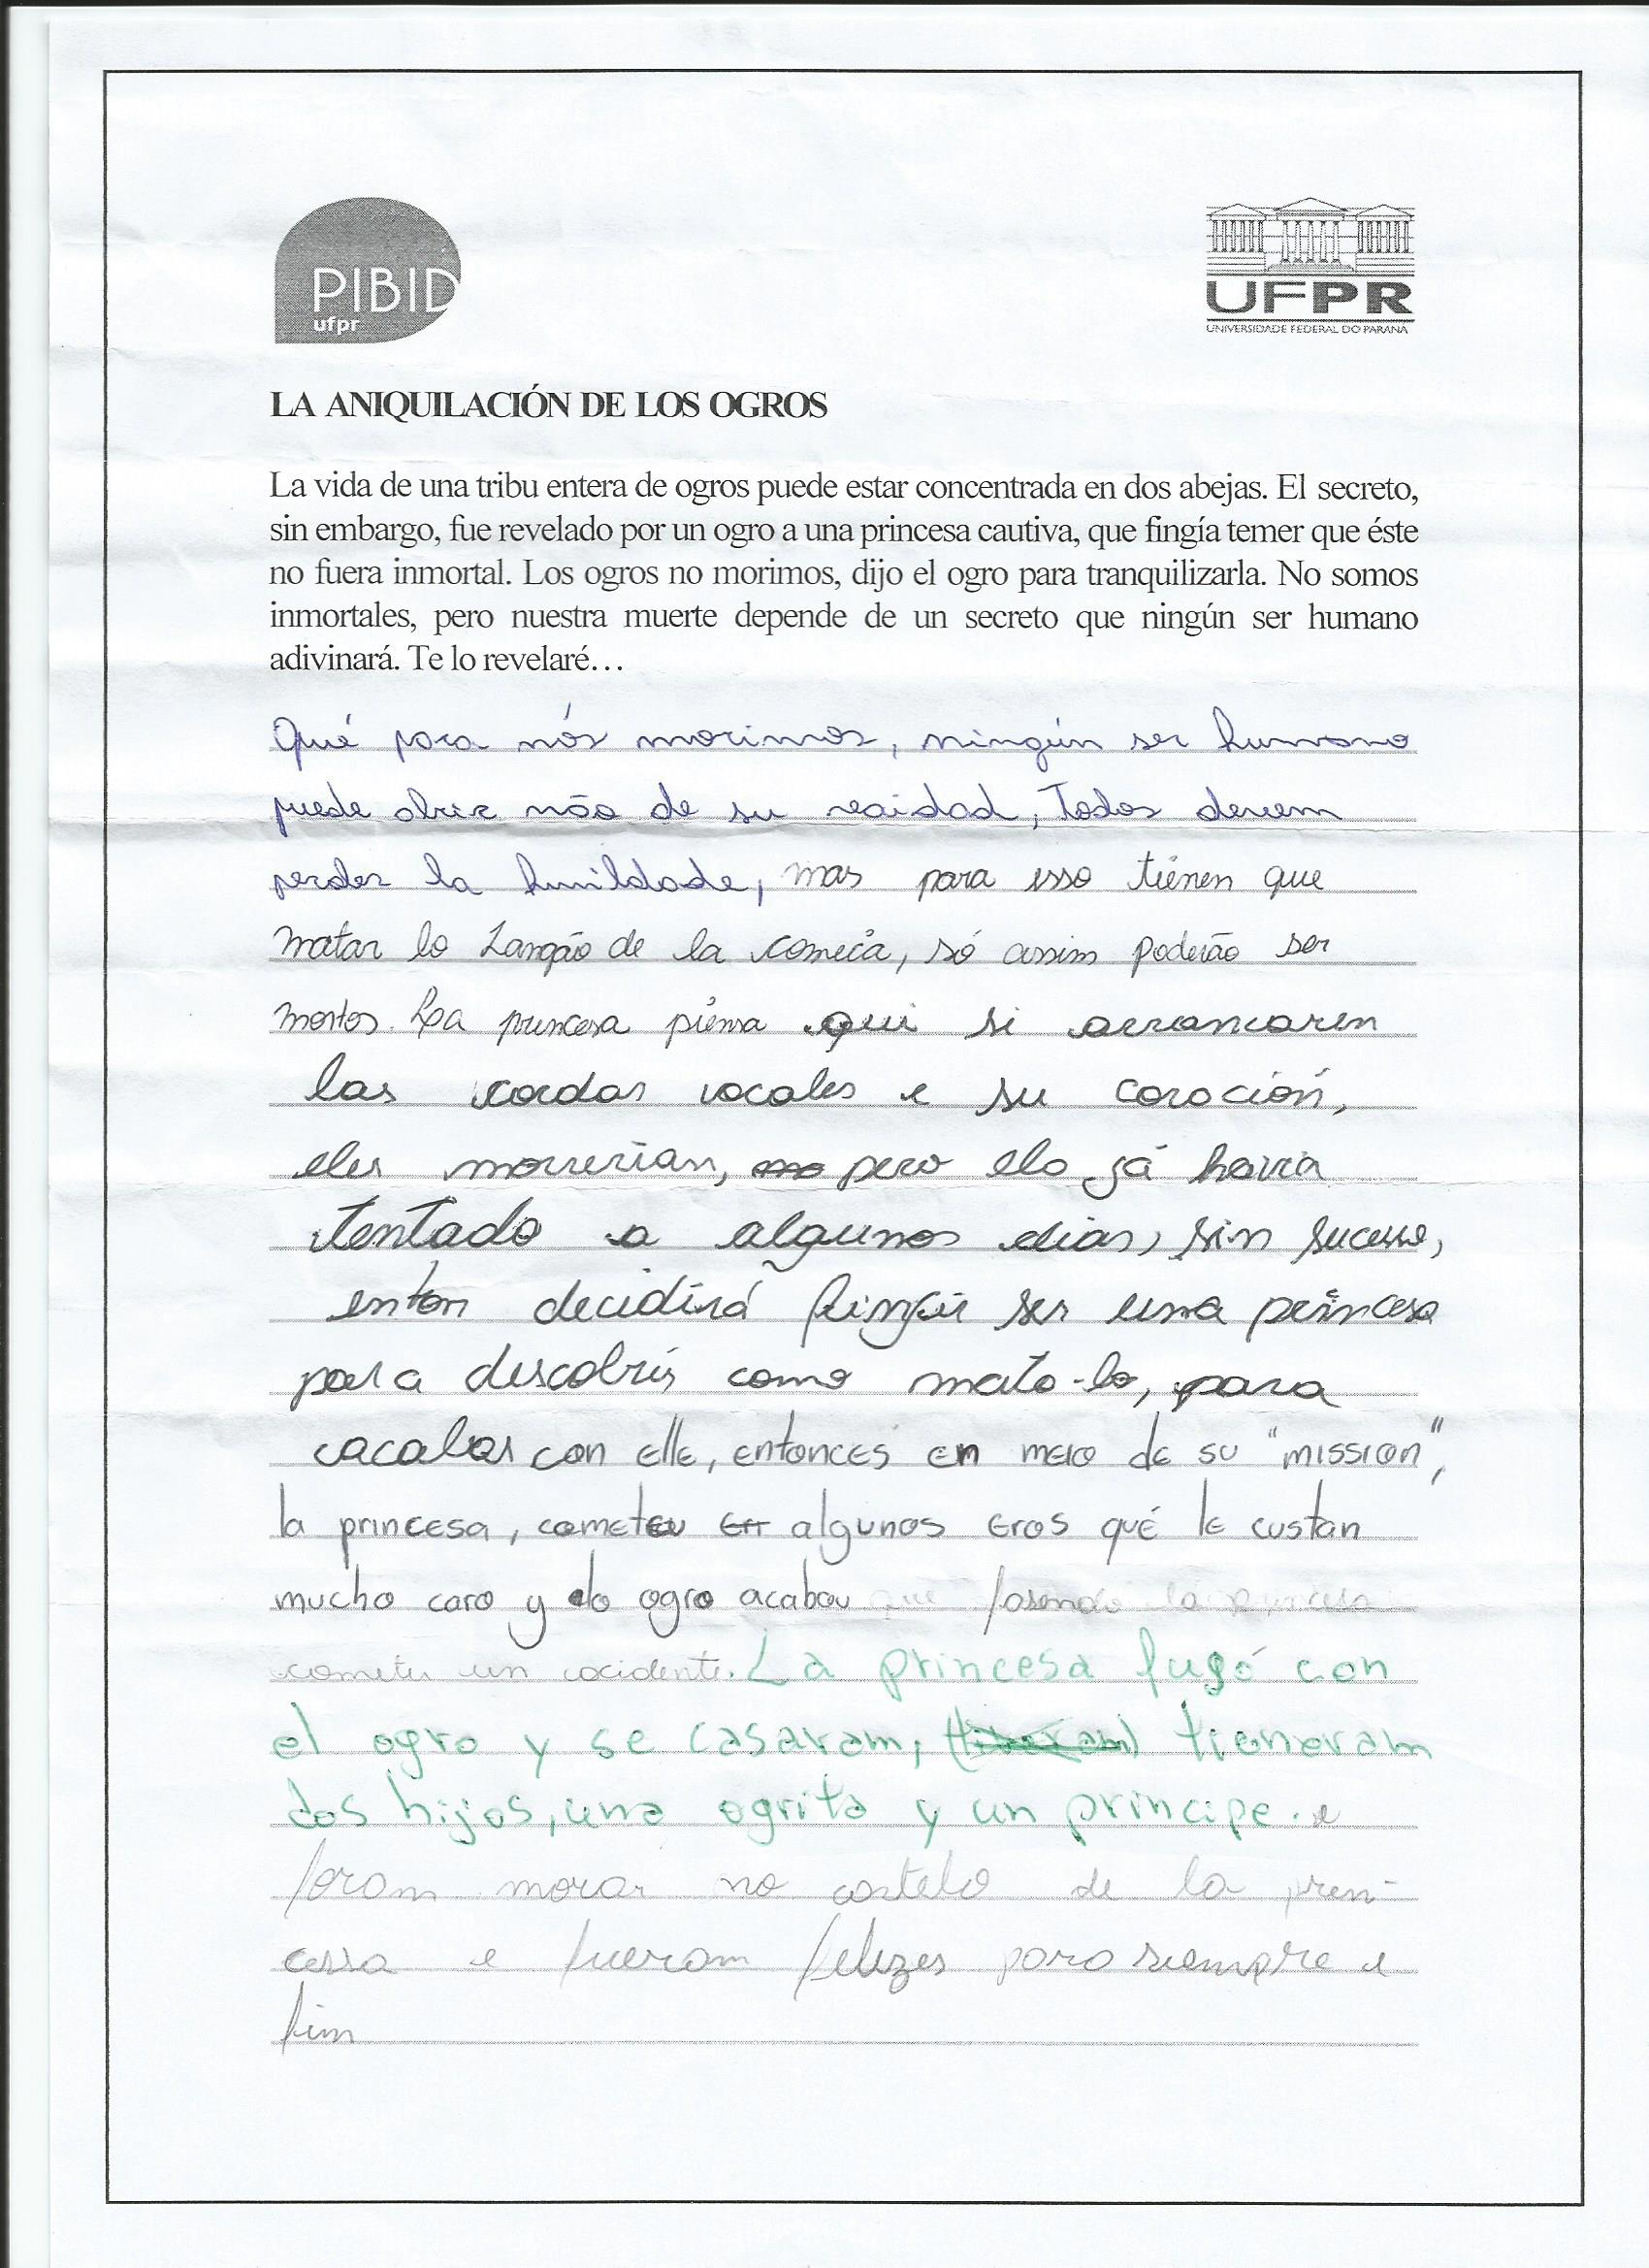 PIBID
ufpr
UFPR
UNIVERSIDADE FEDERAL DO PARANÁ
LA ANIQUILACIÓN DE LOS OGROS
La vida de una tribu entera de ogros puede estar concentrada en dos abejas. El secreto,
sin embargo, fue revelado por un ogro a una princesa cautiva, que fingía temer que éste
no fuera inmortal. Los ogros no morimos, dijo el ogro para tranquilizarla. No somos
inmortales, pero nuestra muerte depende de un secreto que ningún ser humano
adivinará. Te lo revelaré…
Qué para nós morimos, ningún ser humano
puede abrir mão de su vaidad, Todos devem
perder la humildade, mas para isso tienen que
matar lo zangão de la comeia, só assim poderão ser
mortos. La princesa piensa qui si arrancaren
las cordas vocales e su coroción,
eles morrerian, pero ela já havia
tentado a algunos dias, sin sucesso,
enton decidirá fingir ser una princesa
para descobrir como mata-lo, para
acabar con elle, entonces en meio de su "mission",
la princesa, cometeu algunos eros qué le custan
mucho caro y do ogro acabou que fasendo la princesa
cometer un acidente. La princesa fugó con
el ogro y se casaram, tioneram
dos hijos, una ogrita y un principe. e
foram morar no castelo de la prin-
cessa e fueram felizes para siempre e
fim